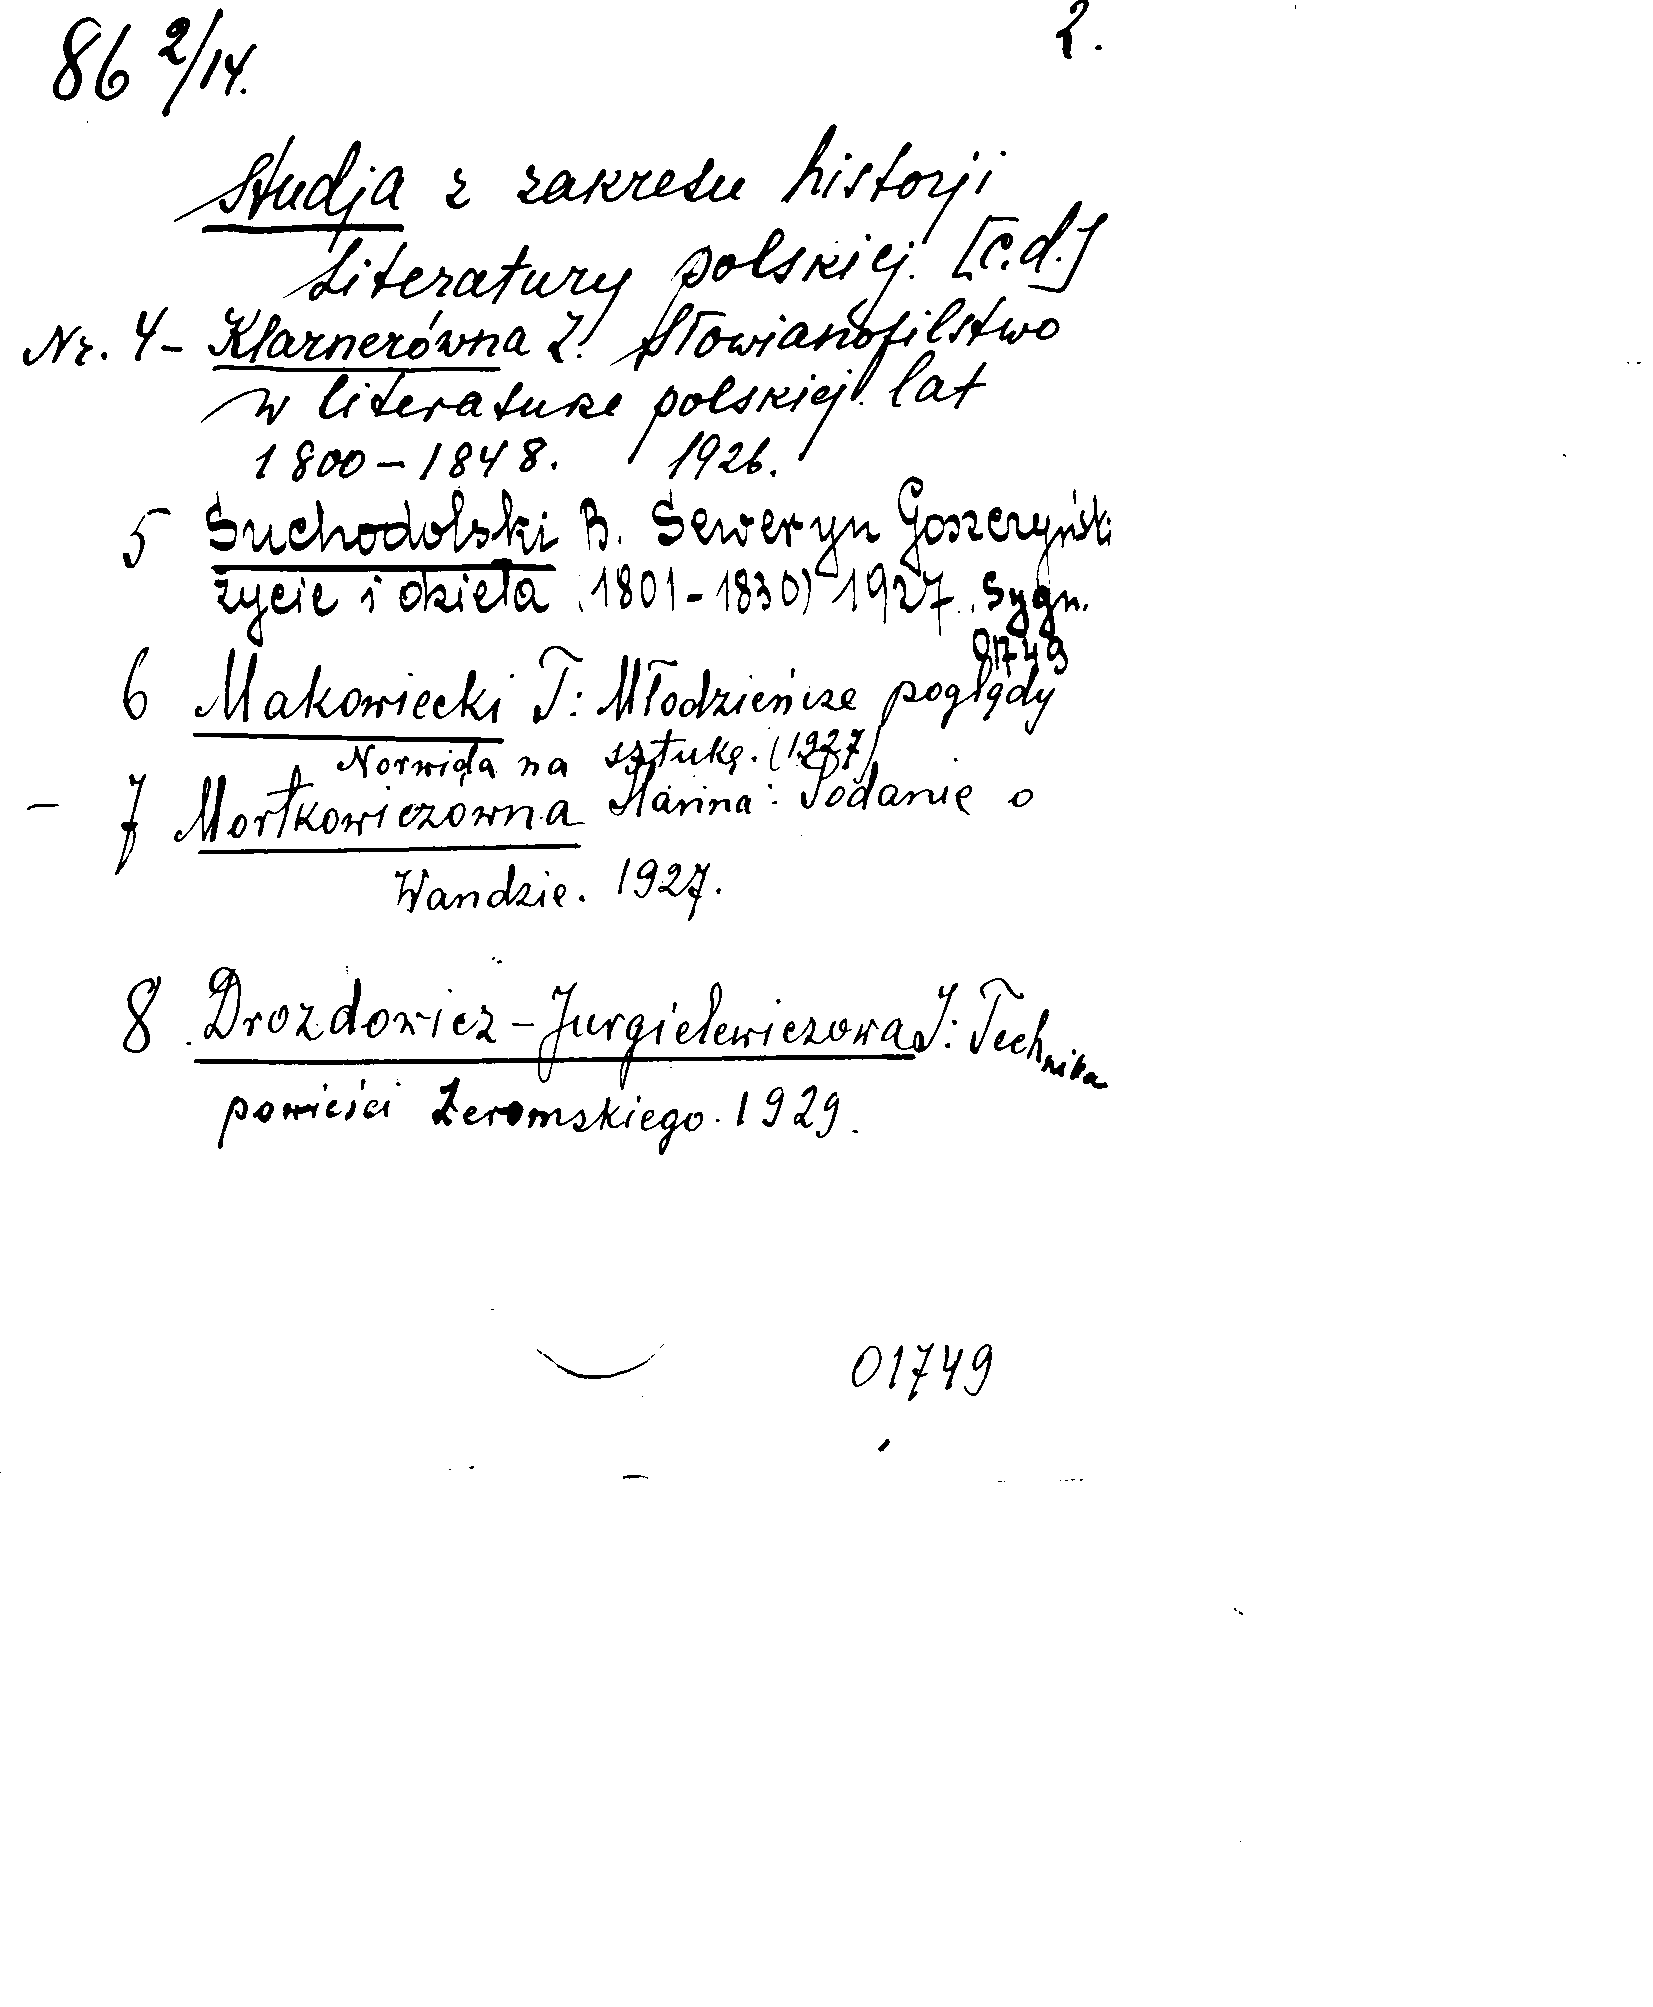 86 2/14.
2.
Studja z zakresu historji
Literatury polskiej. [c.d.]
Nr. 4 - Klarnerówna Z. Słowianofilstwo
w literaturze polskiej lat
1800-1848. 1926.
5 Suchodolski B. Seweryn Goszczyński
życie i dzieła (1801-1830) 1927. Sygn.
01749
6 Makowiecki T: Młodzieńcze poglądy
Norwida na sztukę. (1927)
- 7 Mortkowiczówna Hanna: Podanie o
Wandzie. 1927.
8. Drozdowicz-Jurgielewiczowa I: Technika
powieści Żeromskiego. 1929.
01749